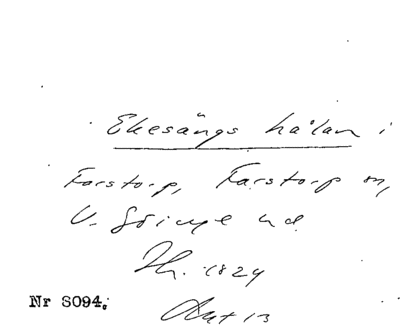 Ekesängs hålan i
Farstorp, Farstorp sn,
V. Göinge hd
Th. 1824
Nr S094.
13